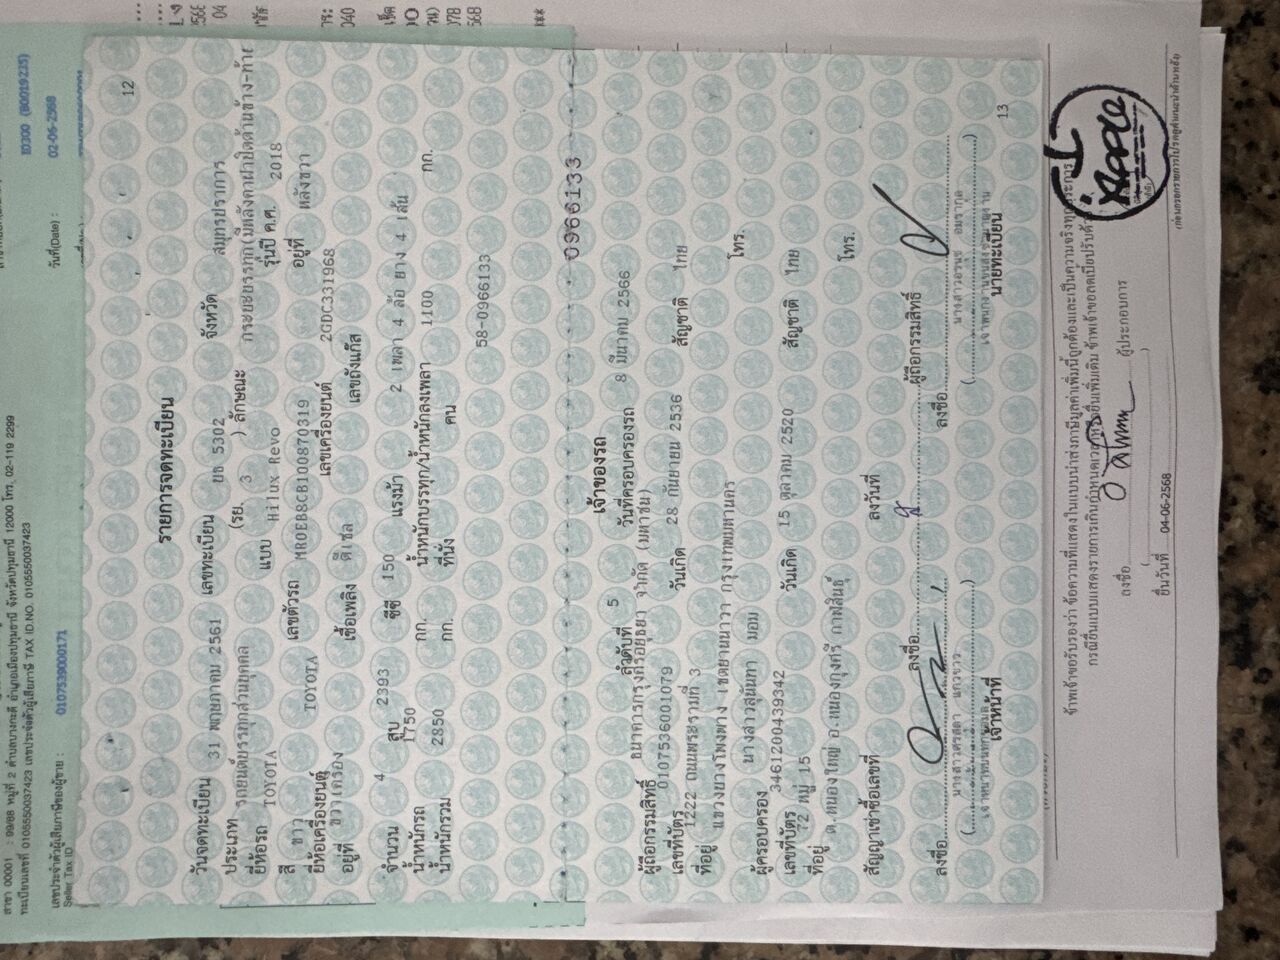 12
รายการจดทะเบียน
วันจดทะเบียน 31 พฤษภาคม 2561 เลขทะเบียน ยธ 5302 จังหวัด สมุทรปราการ
ประเภท รถยนต์บรรทุกส่วนบุคคล (รย. 3 ) ลักษณะ กระบะบรรทุก(มีหลังคาฝาปิดด้านข้าง-ท้าย
ยี่ห้อรถ TOYOTA แบบ Hilux Revo รุ่นปี ค.ศ. 2018
สี ขาว เลขตัวรถ MR0EB8CB100870319 อยู่ที่ หลังขวา
ยี่ห้อเครื่องยนต์ TOYOTA เลขเครื่องยนต์ 2GDC331968
อยู่ที่ ขวาเครื่อง เชื้อเพลิง ดีเซล เลขถังแก๊ส
จำนวน 4 สูบ 2393 ซีซี 150 แรงม้า 2 เพลา 4 ล้อ ยาง 4 เส้น
น้ำหนักรถ 1750 กก. น้ำหนักบรรทุก/น้ำหนักลงเพลา 1100 กก.
น้ำหนักรวม 2850 กก. ที่นั่ง คน
58-0966133
0966133
เจ้าของรถ
ลำดับที่ 5 วันที่ครอบครองรถ 8 มีนาคม 2566
ผู้ถือกรรมสิทธิ์ ธนาคารกรุงศรีอยุธยา จำกัด (มหาชน)
เลขที่บัตร 0107536001079 วันเกิด 28 กันยายน 2536 สัญชาติ ไทย
ที่อยู่ 1222 ถนนพระรามที่ 3
แขวงบางโพงพาง เขตยานนาวา กรุงเทพมหานคร โทร.
ผู้ครอบครอง นางสาวสุนันทา มอม
เลขที่บัตร 3461200439342 วันเกิด 15 ตุลาคม 2520 สัญชาติ ไทย
ที่อยู่ 72 หมู่ 15
ต.หนองใหญ่ อ.หนองกุงศรี กาฬสินธุ์ โทร.
สัญญาเช่าซื้อเลขที่ ลงวันที่
ลงชื่อ ผู้ถือกรรมสิทธิ์
ลงชื่อ ลงชื่อ
เจ้าหน้าที่ นายทะเบียน
13
สาขา 00001 : 99/88 หมู่ที่ 2 ตำบลบางกะดี อำเภอเมืองปทุมธานี จังหวัดปทุมธานี 12000 โทร. 02-119 2299
ทะเบียนเลขที่ 0105550037423 เลขประจำตัวผู้เสียภาษี TAX ID.NO. 0105550037423
เลขประจำตัวผู้เสียภาษีของผู้ขาย : 0107539000171
Seller Tax ID
ID300 (B0019235)
วันที่(Date) : 02-06-2568
ข้าพเจ้าขอรับรองว่า ข้อความที่แสดงในแบบนำส่งภาษีมูลค่าเพิ่มนี้ถูกต้องและเป็นความจริงทุกประการ
ลงชื่อ ผู้ประกอบการ
ยื่นวันที่ 04-06-2568
(ก่อนกรอกรายการโปรดดูคำแนะนำด้านหลัง)